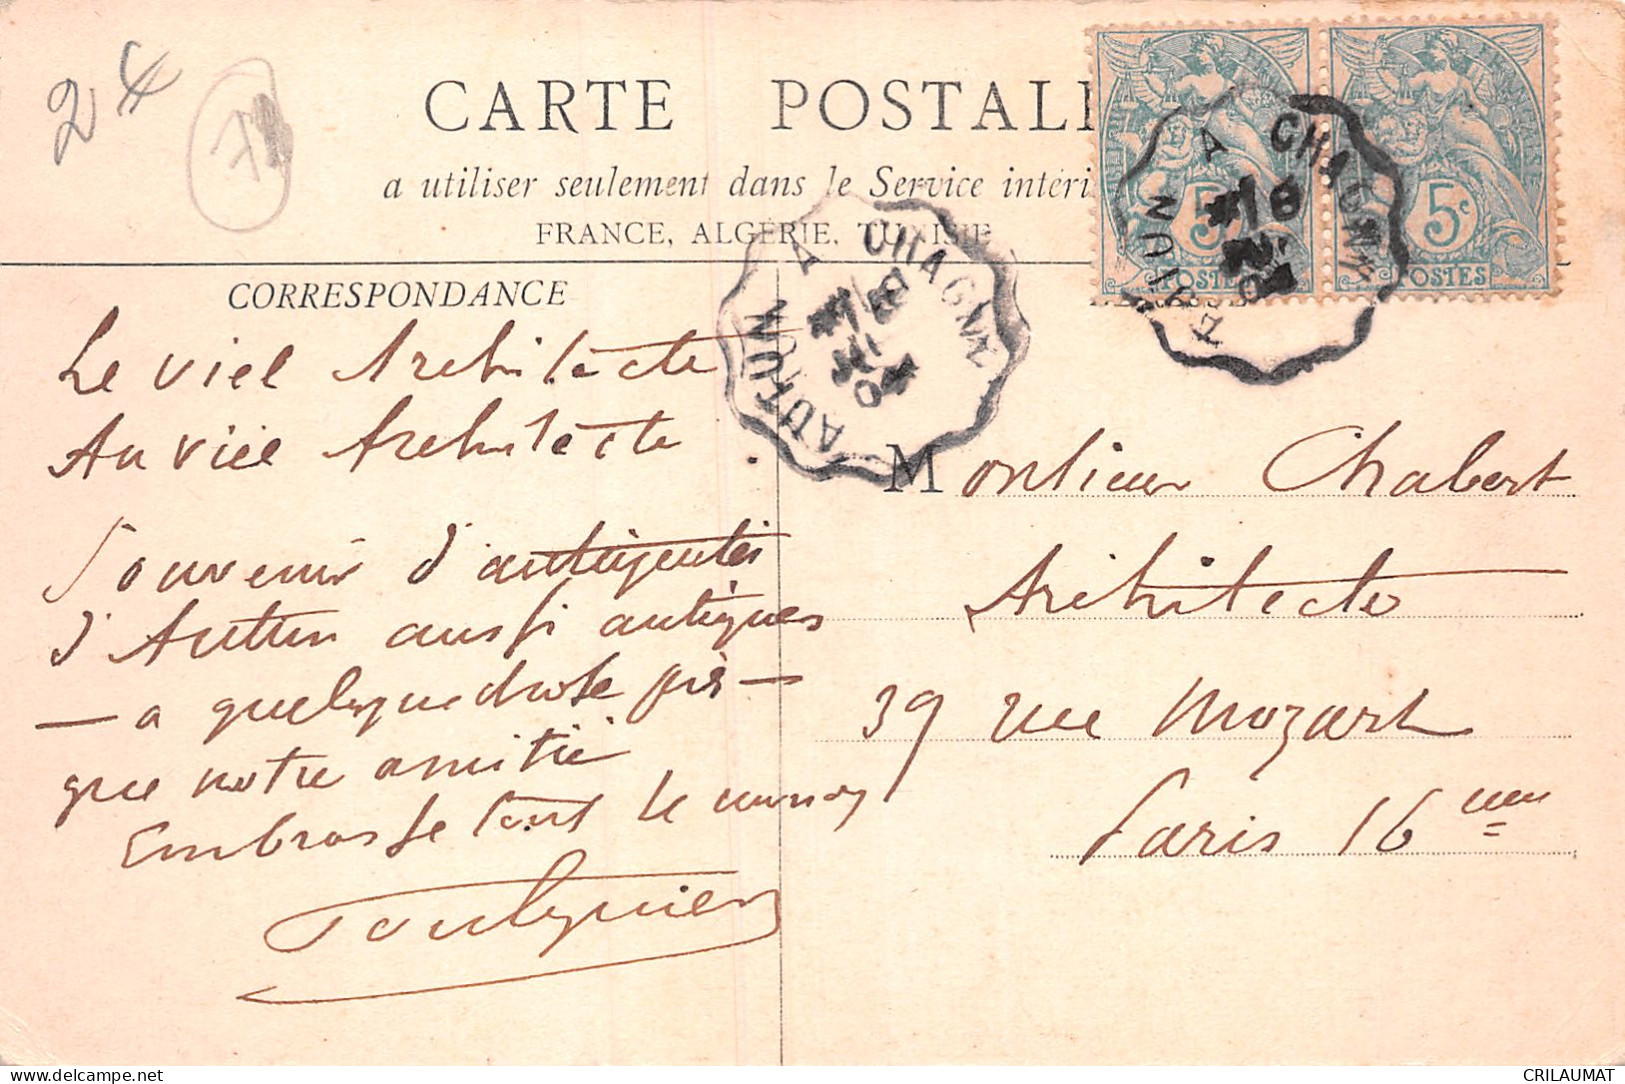 24
CARTE POSTALE
a utiliser seulement dans le Service intéri
FRANCE, ALGÉRIE, TUNISIE
5
POSTES
5c
POSTES
AUTUN A CHAGNY
04
AUTUN A CHAGNY
CORRESPONDANCE
Le viel Architecte
Au viel Architecte
Souvenir d'
d'Autun aussi antiques
— a quelque chose près —
que notre amitié
Embrasse tout le
Monsieur Chabert
Architecte
39 rue Mozart
Paris 16eme
CRILAUMAT